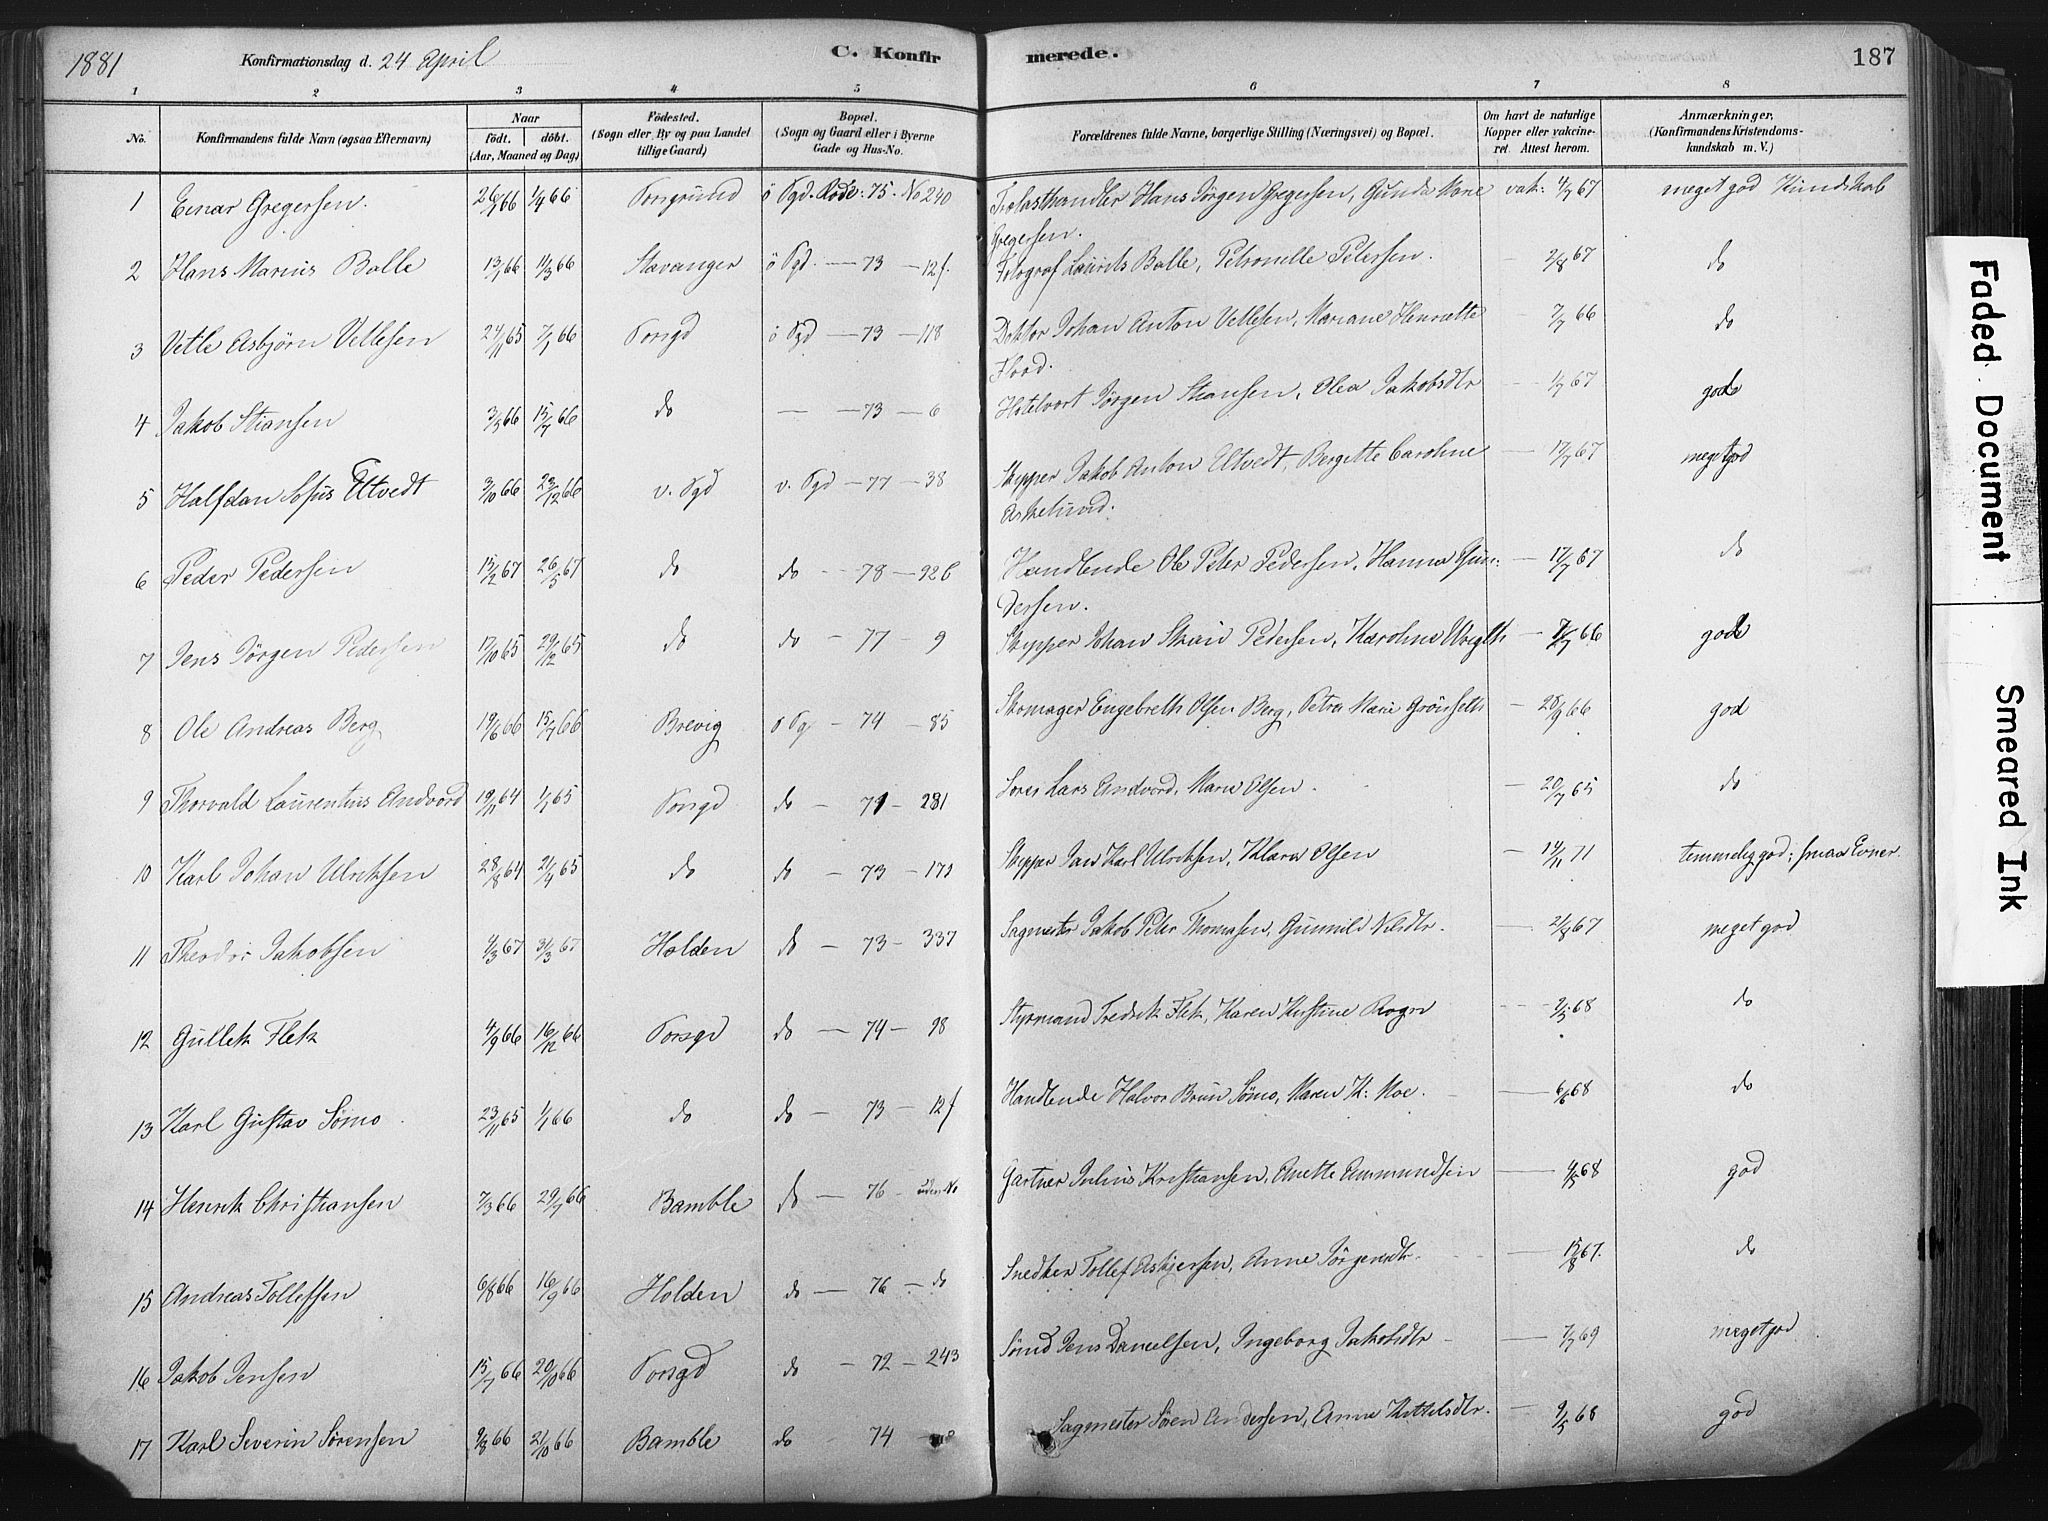 1881 Konfirmationsdag d. 24 April C. Konfirmerede. 187
1 2 3 4 5 6 7 8
No. Konfirmandens fulde Navn (ogsaa Efternavn) Naar født. døbt. (Aar, Maaned og Dag) Fødested. (Sogn eller By og paa Landet tillige Gaard) Bopæl. (Sogn og Gaard eller i Byerne Gade og Hus-No. Forældrenes fulde Navne, borgerlige Stilling (Næringsvei) og Bopæl. Om havt de naturlige Kopper eller vakcineret. Attest herom. Anmærkninger, (Konfirmandens Kristendomskundskab m. V.)
1 Einar Gregersen. 26/1 66 1/4 66 Porsgrund ö Pgd. Rode: 75. No 240 Trælasthandler Hans Jörgen Gregersen, Gunda Marie Gregersen. vak: 4/7 67 meget god Kundskab
2 Hans Marius Balle 13/1 66 11/3 66 Stavanger ö Pgd. — 73 — 12f. Fotograf Laurits Balle, Petronelle Petersen. — 2/8 67 do
3 Vetle Asbjörn Vellesen 24/11 65 7/1 66 Porsgd ö Pgd — 73 — 118 Doktor Johan Anton Vellesen, Mariane Henriette Flood. 7/7 66 do
4 Jakob Stiansen 3/5 66 15/7 66 do — — 73 — 6 Hotelvert Jörgen Stiansen, Olea Jakobsdtr — 1/7 67 gode
5 Halfdan Sofus Eltvedt 3/10 66 23/12 66 v. Pgd v. Pgd — 77 — 38 Skipper Jakob Anton Eltvedt, Bergitte Caroline Askelund. — 17/7 67 meget god
6 Peder Pedersen 15/2 67 26/5 67 do do — 78 — 926 Handlende Ole Peter Pedersen, Hanna Gundersen. — 17/7 67 do
7 Jens Jörgen Pedersen 17/10 65 29/12 65 do do — 77 — 9 Skipper Johan Pedersen, Karoline — 66 gode
8 Ole Andreas Berg 19/6 66 15/7 66 Brevig ö Pg — 74 — 85 Skomager Engebreth Olsen Berg, Petra Marie Grönseth — 28/9 66 god
9 Thorvald Laurentius Andvord 19/11 64 1/1 65 Porsgd do — 71 — 281 Lars Andvord, Maren Olsen. — 20/7 65 do
10 Karl Johan Ulriksen 28/8 64 2/4 65 do do — 73 — 171 Skipper Karl Ulriksen, Klara Olsen — 14/11 71 temmelig god; smaa Evner.
11 Theodor Jakobsen 4/3 67 31/3 67 Holden do — 73 — 337 Sagmester Jakob Peter Thomasen, Gunnild Nilsdtr. — 2/8 67 meget god
12 Gullek Flek 4/9 66 16/12 66 Porsgd do — 74 — 98 Styrmand Fredrik Flek, Karen Kirstine Rogn — 2/5 68 do
13 Karl Gustav Sömo 23/11 65 1/1 66 do do — 73 — 12f Handlende Halvor Brun Sömo, Maren K. Moe. — 6/6 68 do
14 Henrik Christiansen 7/3 66 29/7 66 Bamble do — 76 — uden No Gartner Julius Kristiansen, Anette Ammundsen — 4/5 68 god
15 Andreas Tollefsen 6/8 66 16/9 66 Holden do — 76 — do Snedker Tollef Asbjersen, Anne Jörgensdtr. — 15/8 67. do
16 Jakob Jensen 15/7 66 20/10 66 Porsgd do — 72 — 243 Sömd Jens Danielsen, Ingeborg Jakobsdtr — 7/7 69 meget god
17 Karl Severin Sörensen 9/8 66 21/10 66 Bamble do — 74 — Sagmester Sören Andersen, Anne Kittelsdtr. — 9/5 68 god
Faded Document Smeared Ink